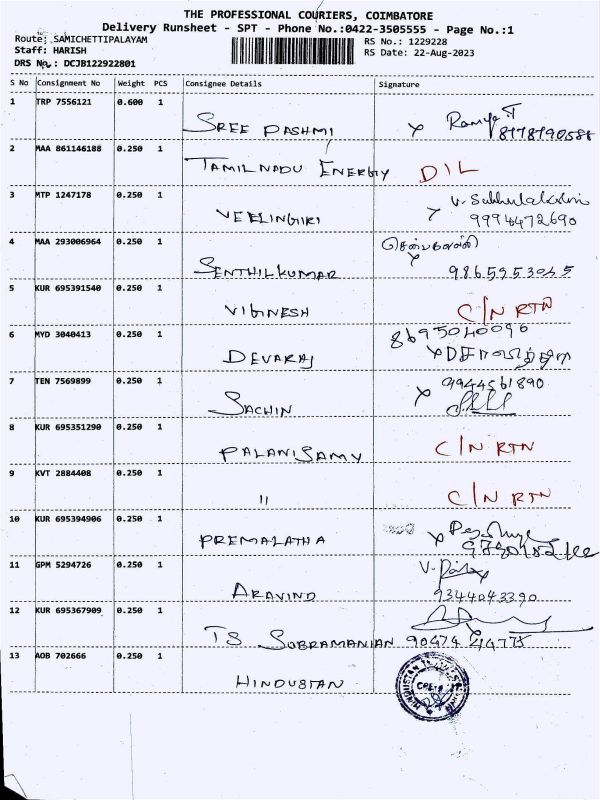 THE PROFESSIONAL COURIERS, COIMBATORE
Delivery Runsheet - SPT - Phone No.:0422-3505555 - Page No.:1
Route: SAMICHETTIPALAYAM
RS No.: 1229228
Staff: HARISH
RS Date: 22-Aug-2023
DRS No.: DCJB122922801
S No Consignment No Weight PCS Consignee Details Signature
1 TRP 7556121 0.600 1
SREE RASHMI x Ramya T
2 MAA 861146188 0.250 1
TAMILNADU ENERGY DIL
3 MTP 1247178 0.250 1
VELLINGIRI V. Subbulakshmi
9994472690
4 MAA 293006964 0.250 1
SENTHILKUMAR x 9865953045
5 KUR 695391540 0.250 1
VIGNESH C/N RTN
6 MYD 3040413 0.250 1
8695040096
DEVARAJ
7 TEN 7569899 0.250 1
SACHIN x 9944561890
8 KUR 695351290 0.250 1
PALANISAMY C/N RTN
9 KVT 2884408 0.250 1
" C/N RTN
10 KUR 695394906 0.250 1
PREMALATHA x
11 GPM 5294726 0.250 1
ARAVIND 9344043390
12 KUR 695367909 0.250 1
TS SUBRAMANIAN 90474 44775
13 AOB 702666 0.250 1
HINDUSTAN